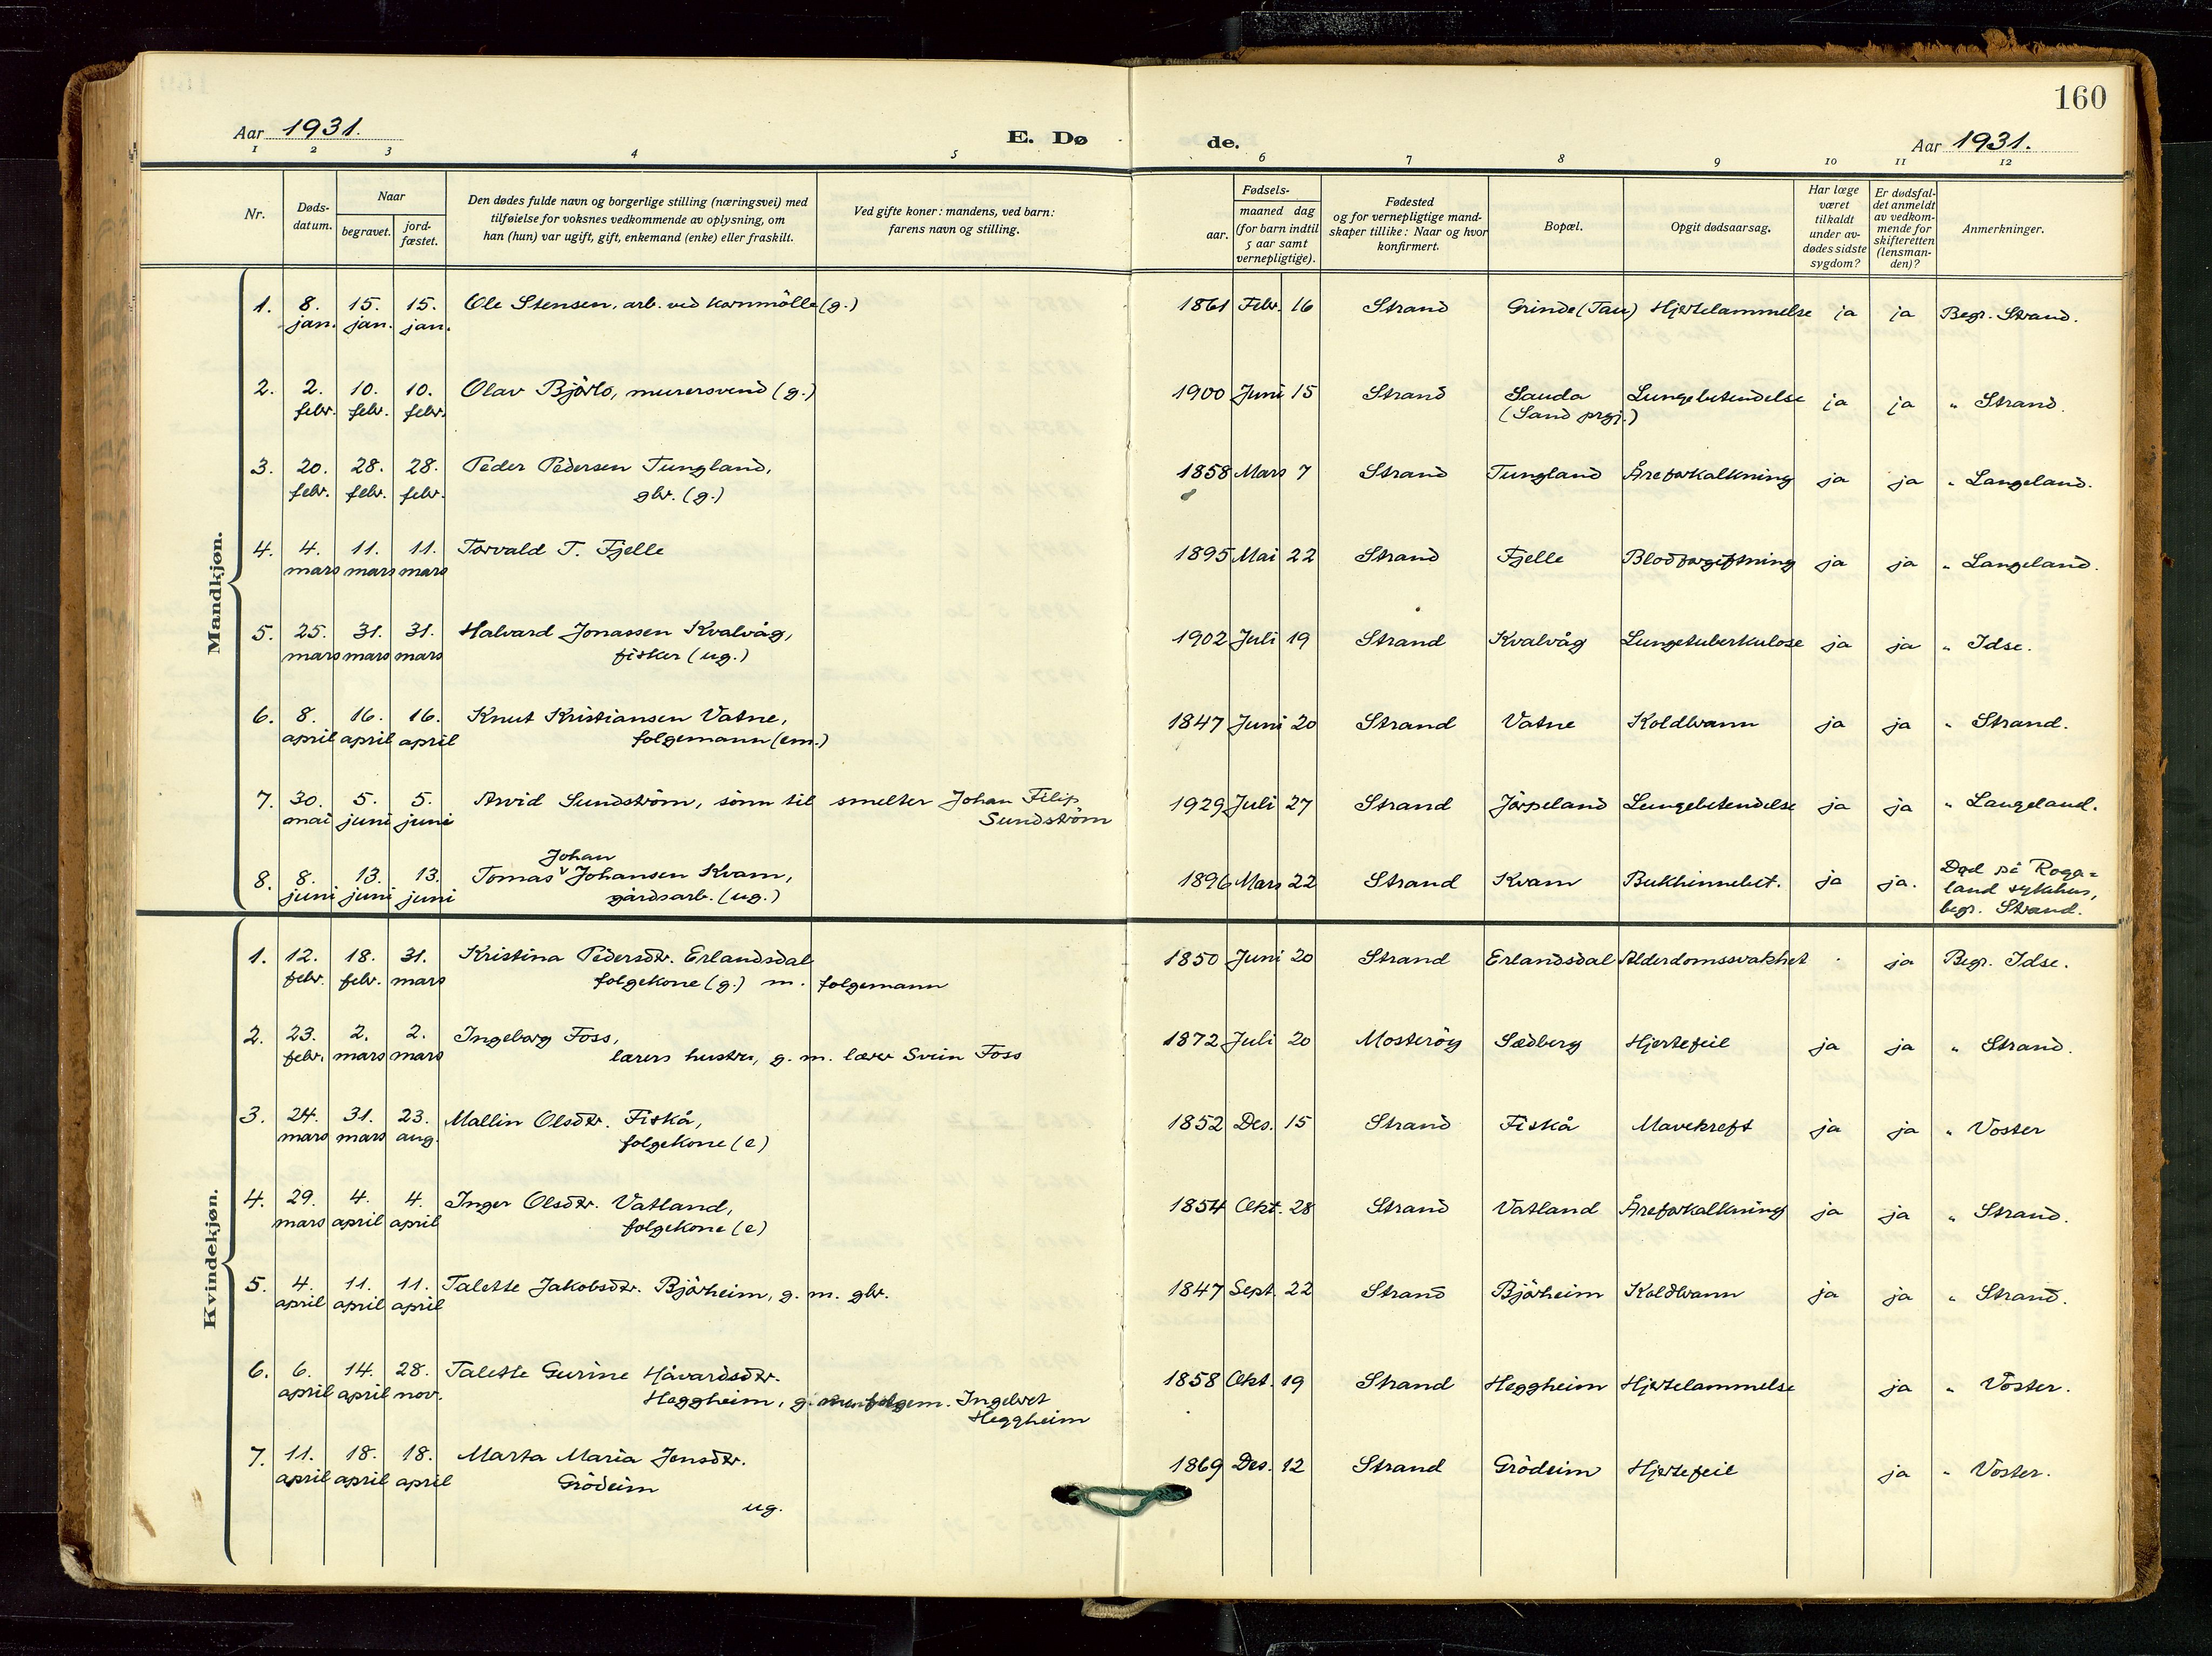 160
Aar 1931.
E. Dø
de.
Aar 1931.
1 2 3 4 5 6 7 8 9 10 11 12
Nr.
Døds-
datum.
Naar
begravet.
jord-
fæstet.
Den dødes fulde navn og borgerlige stilling (næringsvei) med
tilføielse for voksnes vedkommende av oplysning, om
han (hun) var ugift, gift, enkemand (enke) eller fraskilt.
Ved gifte koner: mandens, ved barn:
farens navn og stilling.
Fødsels-
aar.
maaned dag
(for barn indtil
5 aar samt
vernepligtige).
Fødested
og for vernepligtige mand-
skaper tillike: Naar og hvor
konfirmert.
Bopæl.
Opgit dødsaarsag.
Har læge
været
tilkaldt
under av-
dødes sidste
sygdom?
Er dødsfal-
det anmeldt
av vedkom-
mende for
skifteretten
(lensman-
den)?
Anmerkninger.
Mandkjøn.
1. 8. 15. 15. Ole Stensen, arb. ved kornmölle (g.) 1861 Febr. 16 Strand Grinde (Tau) Hjertelammelse ja ja Begr. Strand.
jan. jan. jan.
2. 2. 10. 10. Olav Bjórlo, murersvend (g.) 1900 Juni 15 Strand Sauda Lungebetendelse ja ja " Strand.
febr. febr. febr. (Sand prgj.)
3. 20. 28. 28. Peder Pedersen Tungland, 1858 Mars 7 Strand Tungland Åreforkalkning ja ja " Langeland.
febr. febr. febr. gbr. (g.)
4. 4. 11. 11. Torvald T. Fjelle 1895 Mai 22 Strand Fjelle Blodforgiftning ja ja " Langeland.
mars mars mars
5. 25. 31. 31. Halvard Jonassen Kvalvåg, 1902 Juli 19 Strand Kvalvåg Lungetuberkulose ja ja " Idse.
mars mars mars fisker (ug.)
6. 8. 16. 16. Knut Kristiansen Vatne, 1847 Juni 20 Strand Vatne Koldbrann ja ja " Strand.
april april april folgemann (em.)
7. 30. 5. 5. Arvid Sundström, sönn til smelter Johan Filip 1929 Juli 27 Strand Jörpeland Lungebetendelse ja ja " Langeland.
mai juni juni Sundström
Johan
8. 8. 13. 13. Tomas Johansen Kvam, 1896 Mars 22 Strand Kvam Bukhinnebet. ja ja. Död på Roga-
juni juni juni gårdsarb. (ug.) land sykehus,
begr. Strand.
Kvindekjøn.
1. 12. 18. 31. Kristina Pedersdtr. Erlandsdal 1850 Juni 20 Strand Erlandsdal Alderdomssvakhet · ja Begr. Idse.
febr. febr. mars folgekone (g.) m. folgemann
2. 23. 2. 2. Ingeborg Foss, 1872 Juli 20 Mosteröy Sædberg Hjertefeil ja ja " Strand.
febr. mars mars lærers hustru, g. m. lærer Svein Foss
3. 24. 31. 23. Mallin Olsdtr. Fiskå, 1852 Des. 15 Strand Fiskå Mavekreft ja ja " Voster
mars mars aug. folgekone (e)
4. 29. 4. 4. Inger Olsdtr. Vatland, 1854 Okt. 28 Strand Vatland Åreforkalkning ja ja " Strand.
mars april april folgekone (e)
5. 4. 11. 11. Talette Jakobsdtr. Bjórheim, g. m. gbr. 1847 Sept. 22 Strand Bjórheim Koldbrann ja ja " Strand.
april april april
6. 6. 14. 28. Talette Gurine Håvardsdtr. 1858 Okt. 19 Strand Heggheim Hjertelammelse ja " Voster.
april april nov. Heggheim, g. folgem. Ingebret
Heggheim
7. 11. 18. 18. Marta Maria Jensdtr. 1869 Des. 12 Strand Gródeim Hjertefeil ja " Voster.
april april april Gródeim
ug.